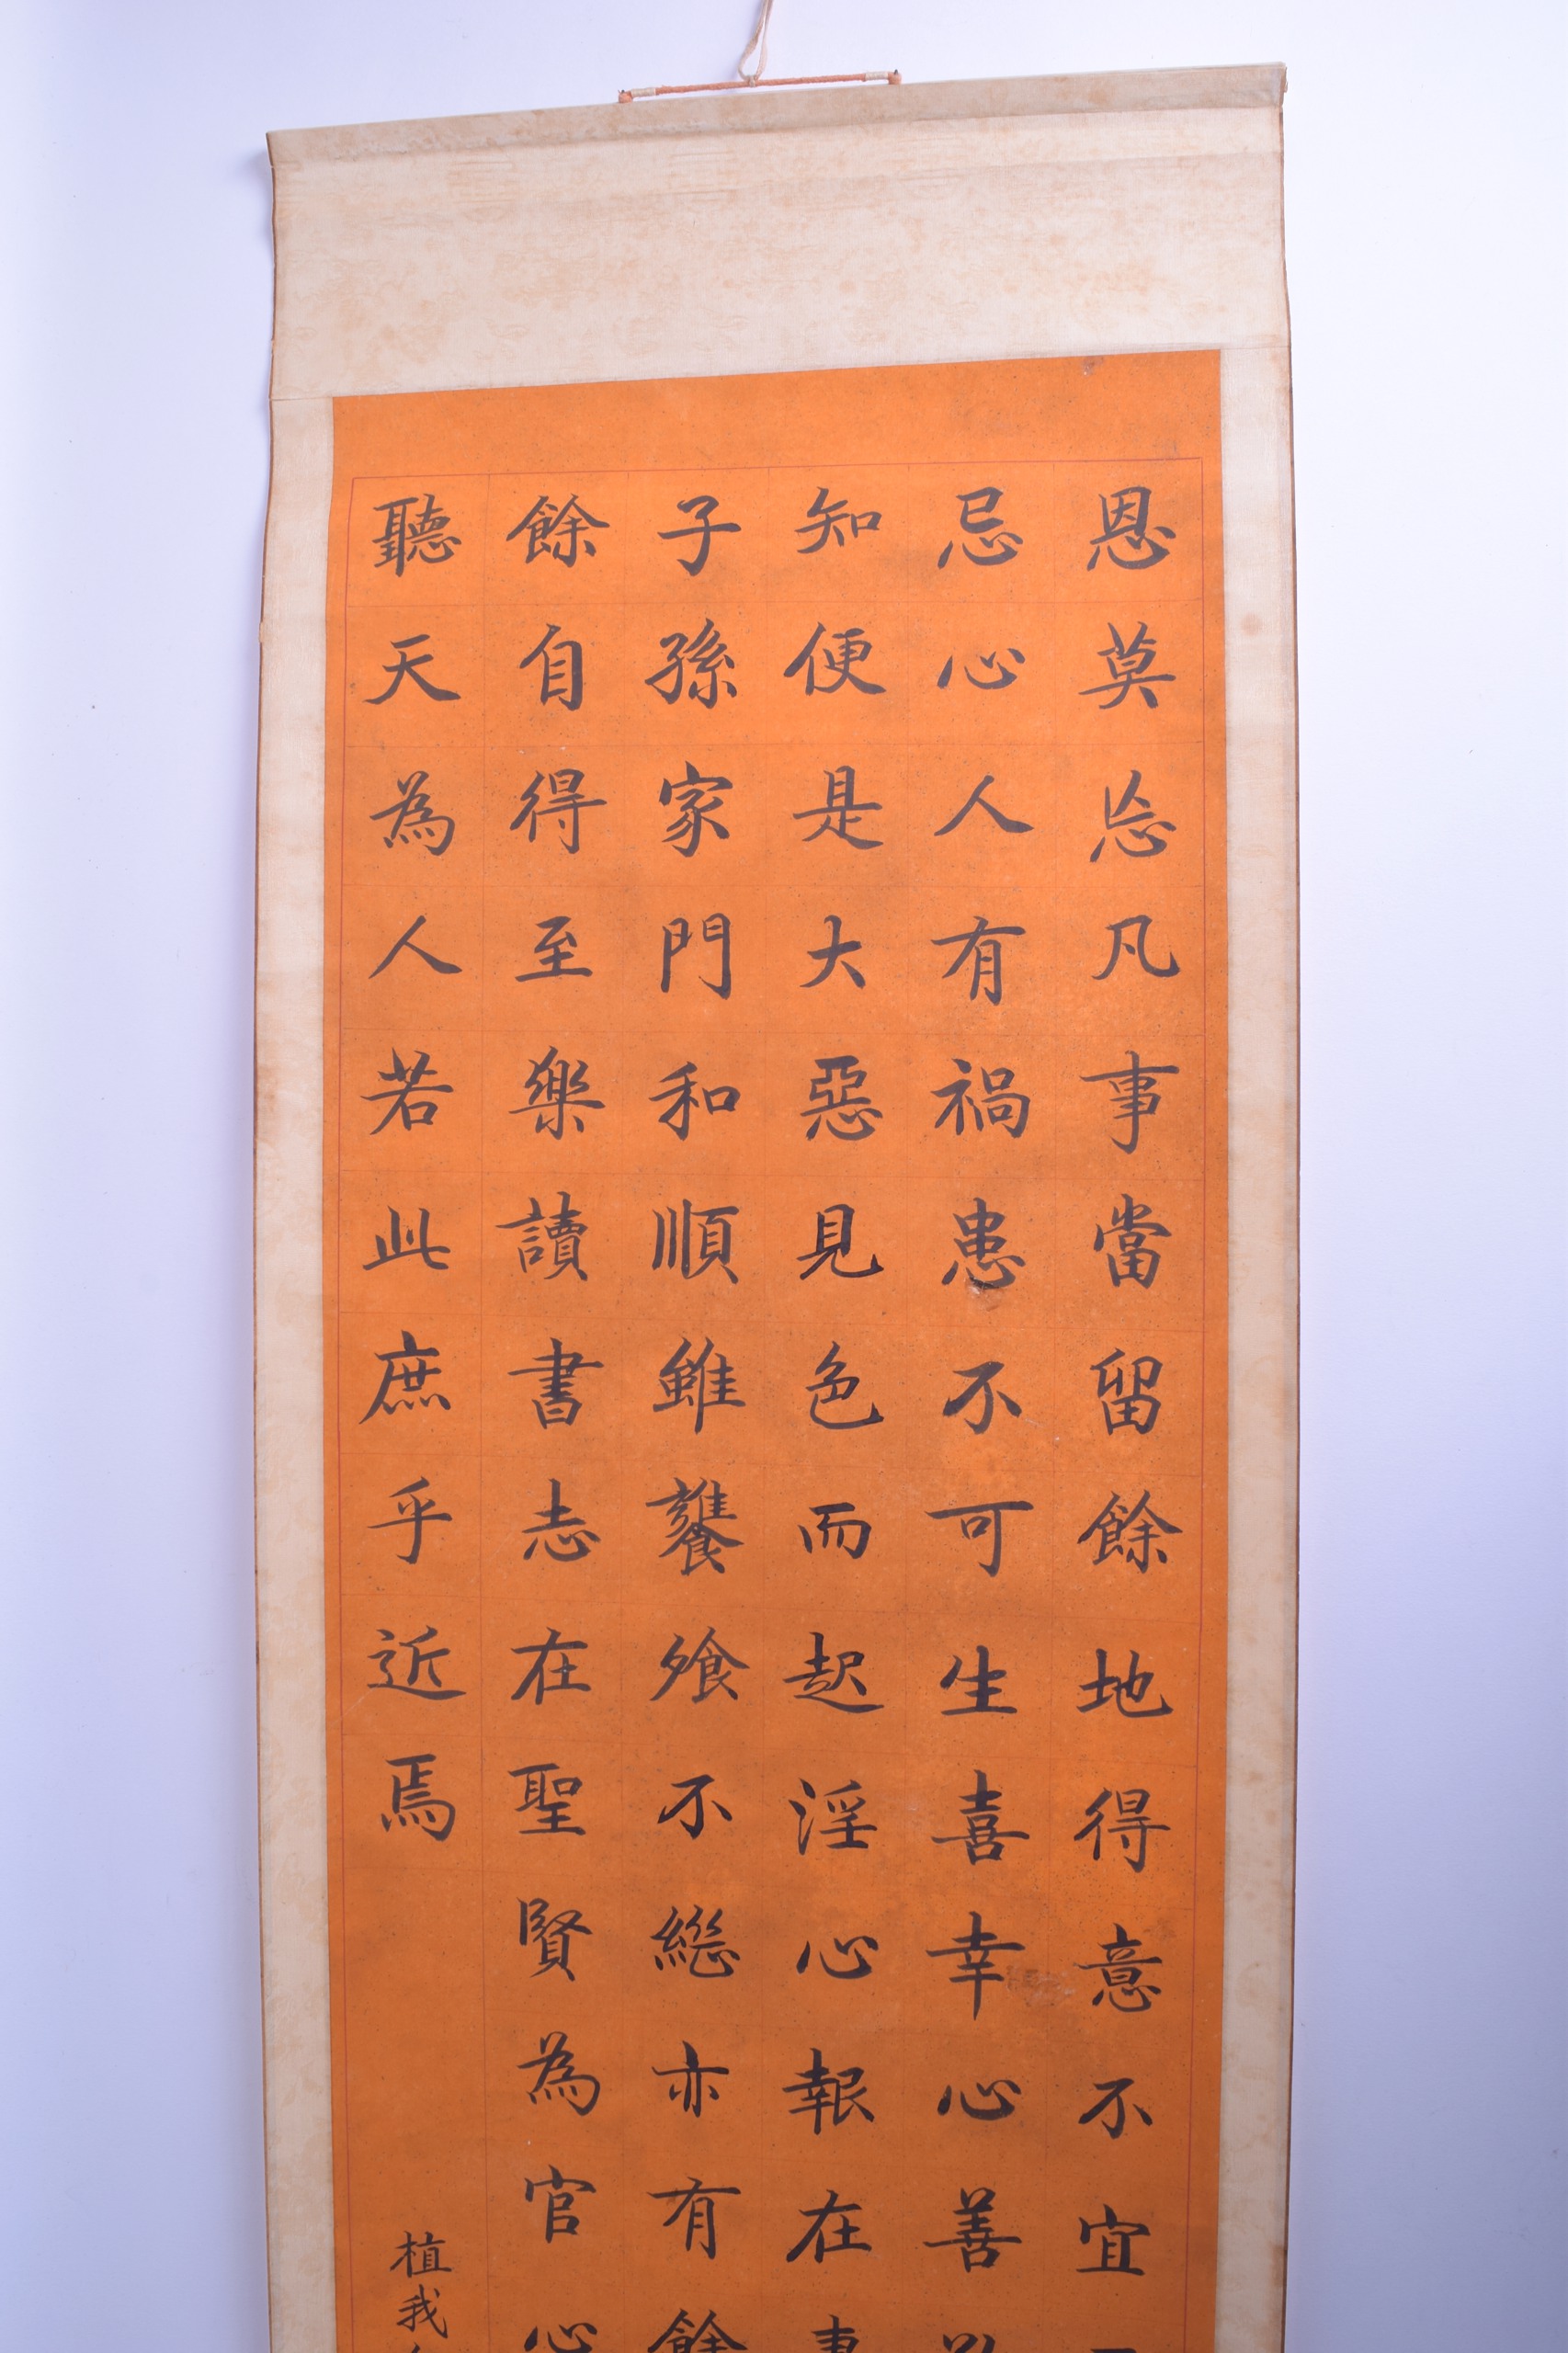 恩莫忘凡事當留餘地得意不宜
忌心人有禍患不可生喜幸心善
知便是大惡見色而起淫心報在
子孫家門和順雖饔飧不繼亦有餘
餘自得至樂讀書志在聖賢為官心
聽天為人若此庶乎近焉
植我